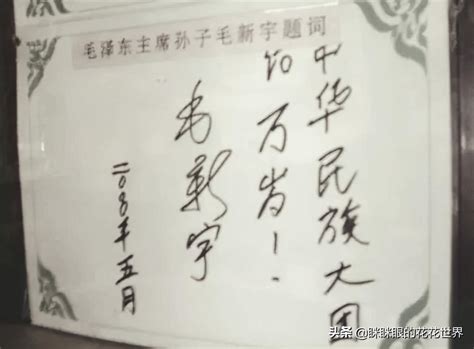 毛泽东主席孙子毛新宇题词
中华民族大团
结万岁！
毛新宇
二〇〇年五月
头条 @眯眯眼的花花世界